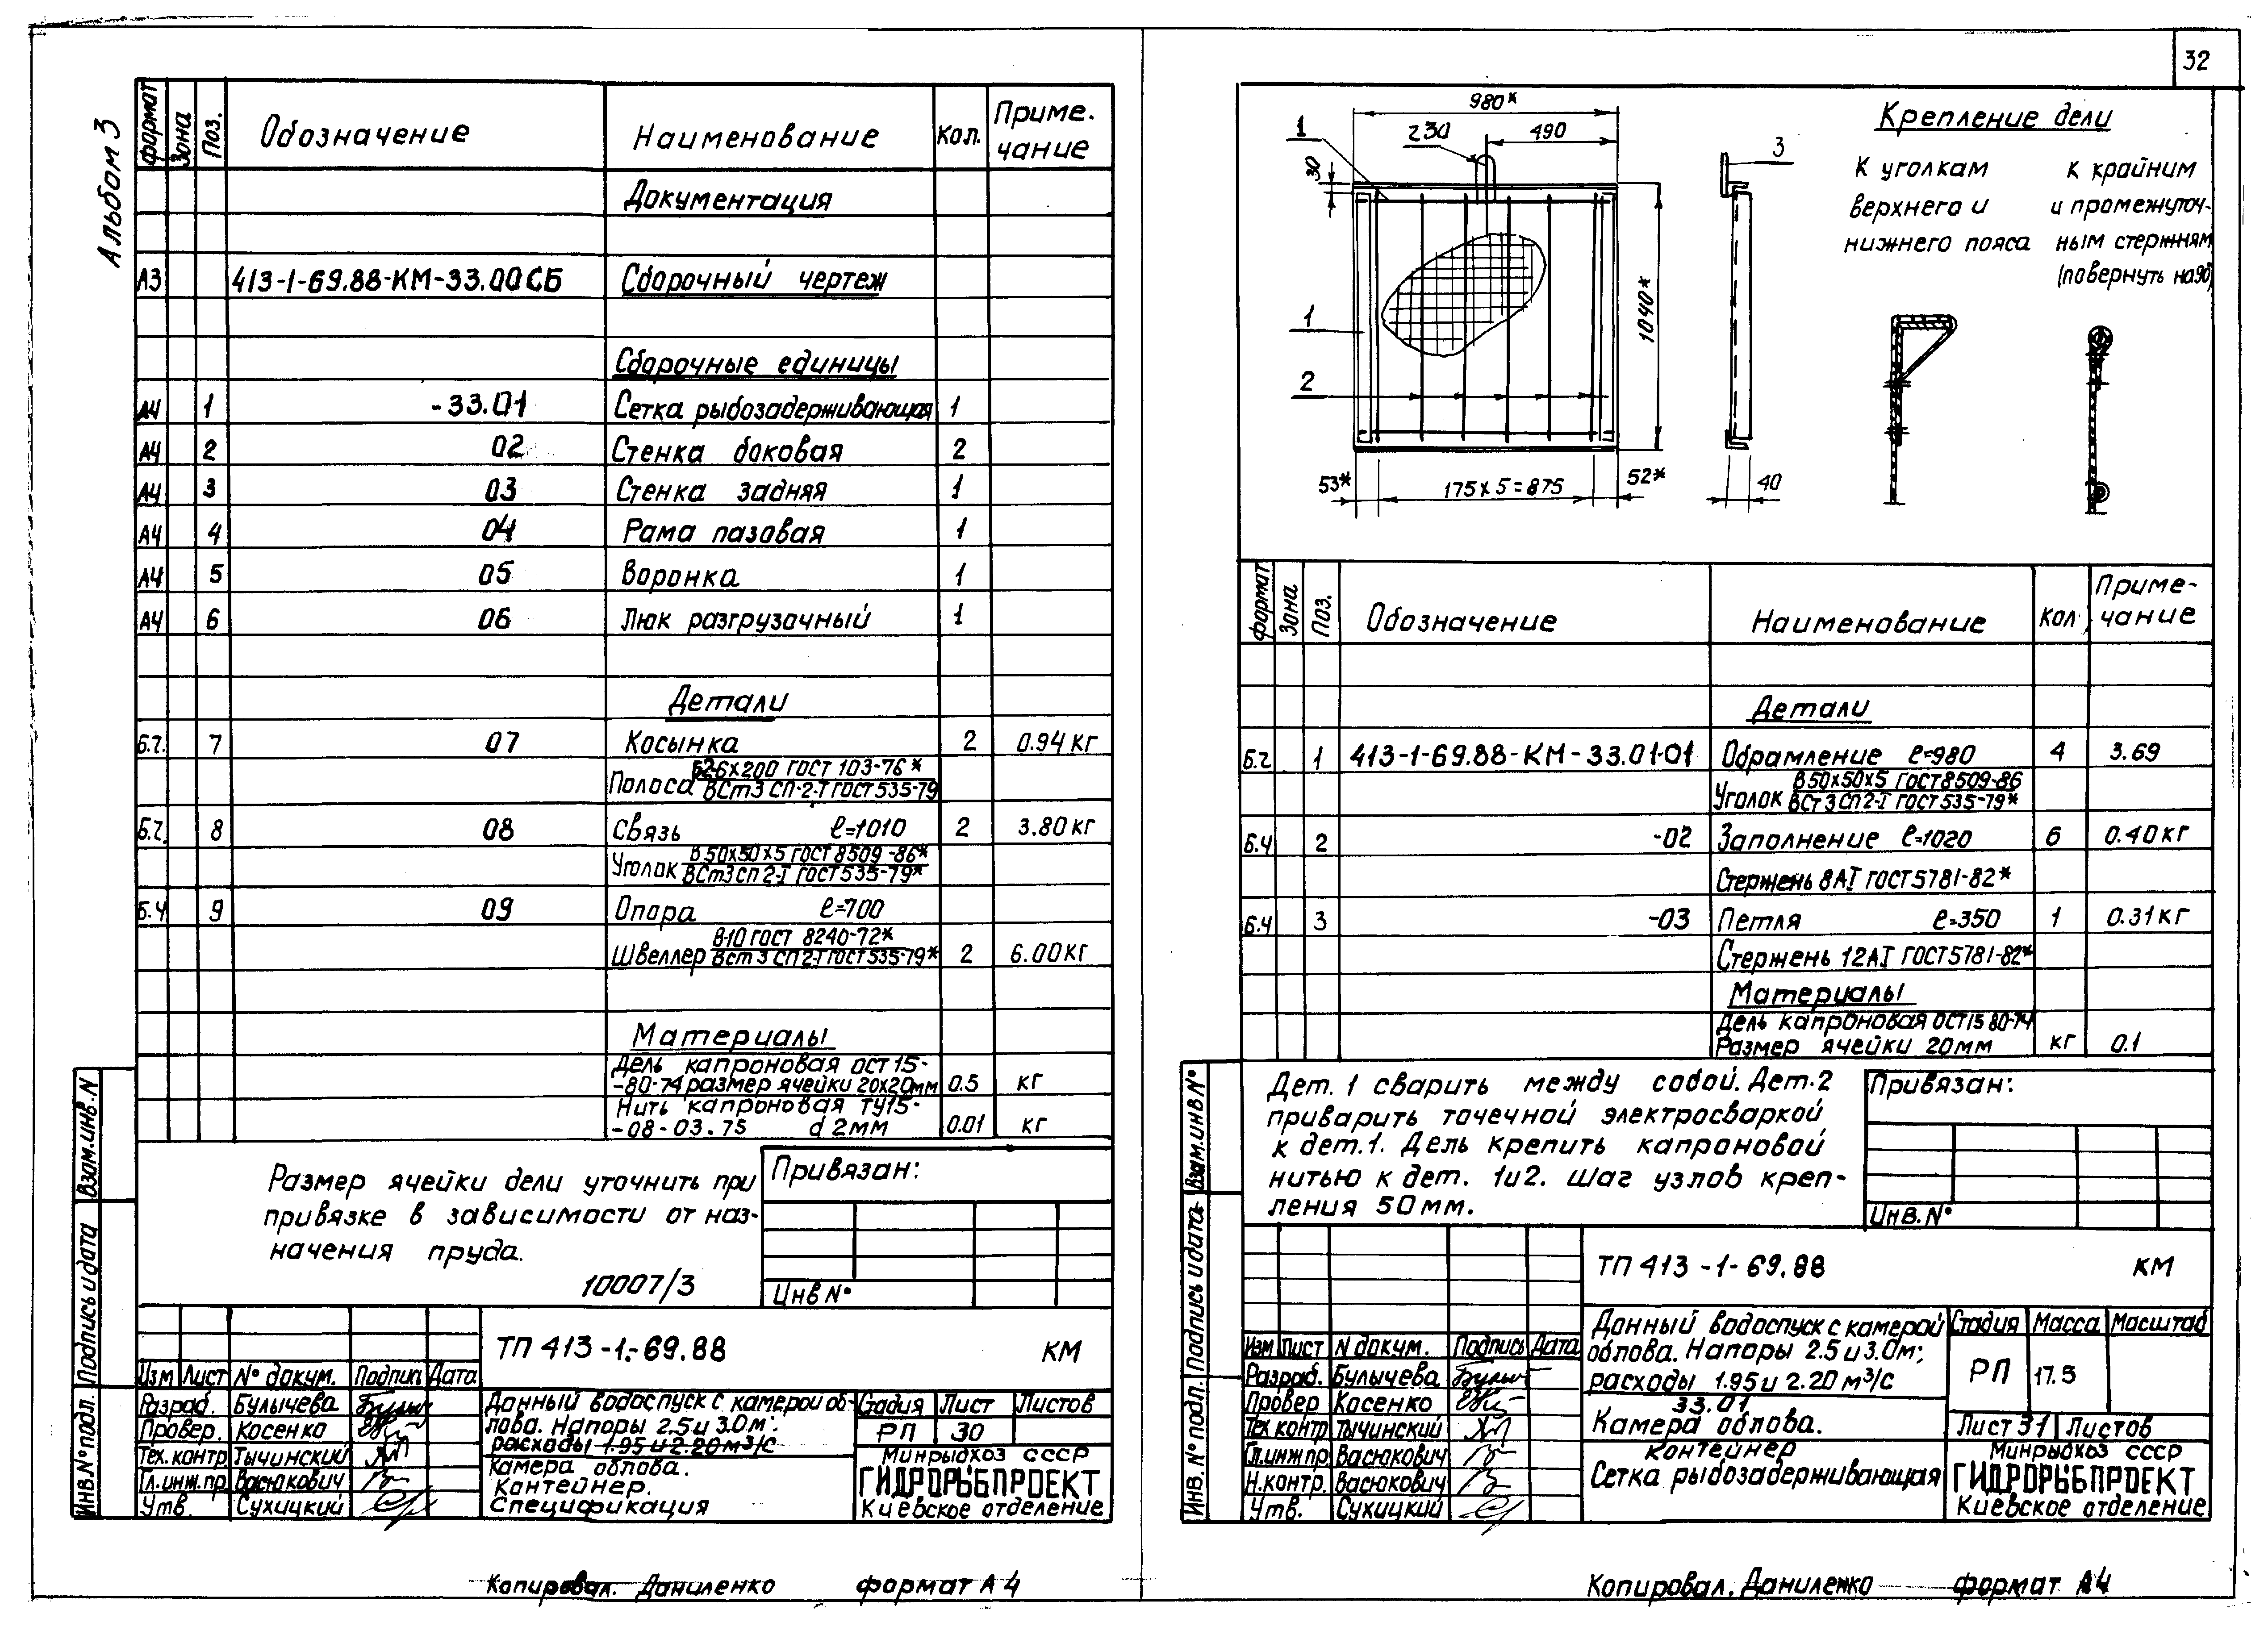 32
Альбом 3
Формат Зона Поз. Обозначение Наименование Кол. Приме.
чание
Документация
А3 413-1-69.88-КМ-33.00СБ Сборочный чертеж
Сборочные единицы
А4 1 -33.01 Сетка рыбозадерживающая 1
А4 2 02 Стенка боковая 2
А4 3 03 Стенка задняя 1
А4 4 04 Рама пазовая 1
А4 5 05 Воронка 1
А4 6 06 Люк разгрузочный 1
Детали
Б.ч. 7 07 Косынка 2 0.94 кг
Полоса 6х200 ГОСТ 103-76*
ВСт3 СП-2-I ГОСТ 535-79
Б.ч. 8 08 Связь ℓ=1010 2 3.80 кг
Уголок В 50х50х5 ГОСТ 8509-86*
ВСт3 СП 2-I ГОСТ 535-79*
Б.ч 9 09 Опора ℓ=700
Швеллер В-10 ГОСТ 8240-72* 2 6.00 кг
ВСт 3 СП 2-I ГОСТ 535-79*
Материалы
Дель капроновая ОСТ 15-
-80-74 размер ячейки 20х20мм 0.5 кг
Нить капроновая ТУ15-
-08-03.75 d 2мм 0.01 кг
Размер ячейки дели уточнить при
привязке в зависимости от наз-
начения пруда.
10007/3
Привязан:
Инв №
ТП 413-1-69.88 КМ
Изм Лист № докум. Подпись Дата
Разраб. Булычева
Провер. Косенко
Тех. контр Тычинский
Гл. инж. пр. Васюкович
Утв. Сухицкий
Донный водоспуск с камерой об-
лова. Напоры 2.5 и 3.0м:
расходы 1.95 и 2.20 м³/с
Камера облова.
Контейнер.
Спецификация
Стадия Лист Листов
РП 30
Минрыдхоз СССР
ГИДРОРЫБПРОЕКТ
Киевское отделение
Инв. № подл. Подпись и дата Взам. инв. N
Копировал. Даниленко формат А4
980*
490
230
30
1
1
2
1040*
53*
175 х 5 = 875
52*
3
40
Крепление дели
К уголкам
верхнего и
нижнего пояса
к крайним
и промежуточ-
ным стержням
(повернуть на 90°)
Формат Зона Поз. Обозначение Наименование Кол Приме-
чание
Детали
Б.ч 1 413-1-69.88-КМ-33.01-01 Обрамление ℓ=980 4 3.69
Уголок В 50х50х5 ГОСТ 8509-86
ВСт 3 СП 2-I ГОСТ 535-79*
Б.ч 2 -02 Заполнение ℓ=1020 6 0.40 кг
Стержень 8АI ГОСТ 5781-82*
Б.ч 3 -03 Петля ℓ=350 1 0.31 кг
Стержень 12АI ГОСТ 5781-82*
Материалы
Дель капроновая ОСТ 15 80-74
Размер ячейки 20мм кг 0.1
Дет. 1 сварить между собой. Дет. 2
приварить точечной электросваркой
к дет. 1. Дель крепить капроновой
нитью к дет. 1 и 2. Шаг узлов креп-
ления 50 мм.
Привязан:
Инв. №
ТП 413-1-69.88 КМ
Изм Лист N докум. Подпись Дата
Разраб. Булычева
Провер Косенко
Тех контр Тычинский
Гл. инж пр Васюкович
Н. контр. Васюкович
Утв. Сухицкий
Донный водоспуск с камерой
облова. Напоры 2.5 и 3.0м;
расходы 1.95 и 2.20 м³/с
33.01
Камера облова.
Контейнер
Сетка рыбозадерживающая
Стадия Масса Масштаб
РП 17.5
Лист 31 Листов
Минрыдхоз СССР
ГИДРОРЫБПРОЕКТ
Киевское отделение
Инв. № подл. Подпись и дата Взам. инв №
Копировал. Даниленко формат А4